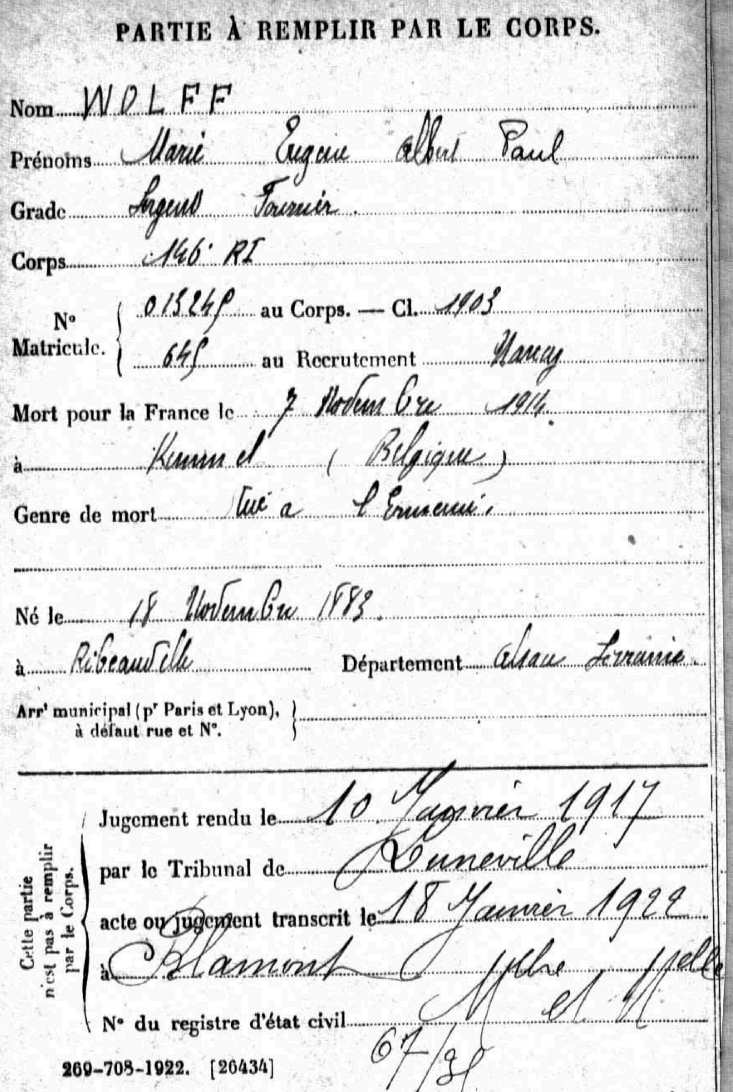 PARTIE À REMPLIR PAR LE CORPS.
Nom WOLFF
Prénoms Marie Eugene Albert Paul
Grade Sergent Fourrier
Corps 146° RI
N° Matricule. 013245 au Corps. — Cl. 1903
645 au Recrutement Nancy
Mort pour la France le 7 Novembre 1914
à Kemmel (Belgique)
Genre de mort Tué a l'Ennemi.
Né le 18 Novembre 1883.
à Ribeauvillé Département Alsace Lorraine.
Arrt municipal (pr Paris et Lyon),
à défaut rue et N°.
Cette partie
n'est pas à remplir
par le Corps.
Jugement rendu le 10 Janvier 1917
par le Tribunal de Luneville
acte ou jugement transcrit le 18 Janvier 1922
à Blamont Mthe et Melle
N° du registre d'état civil
67/35
269-708-1922. [26434]